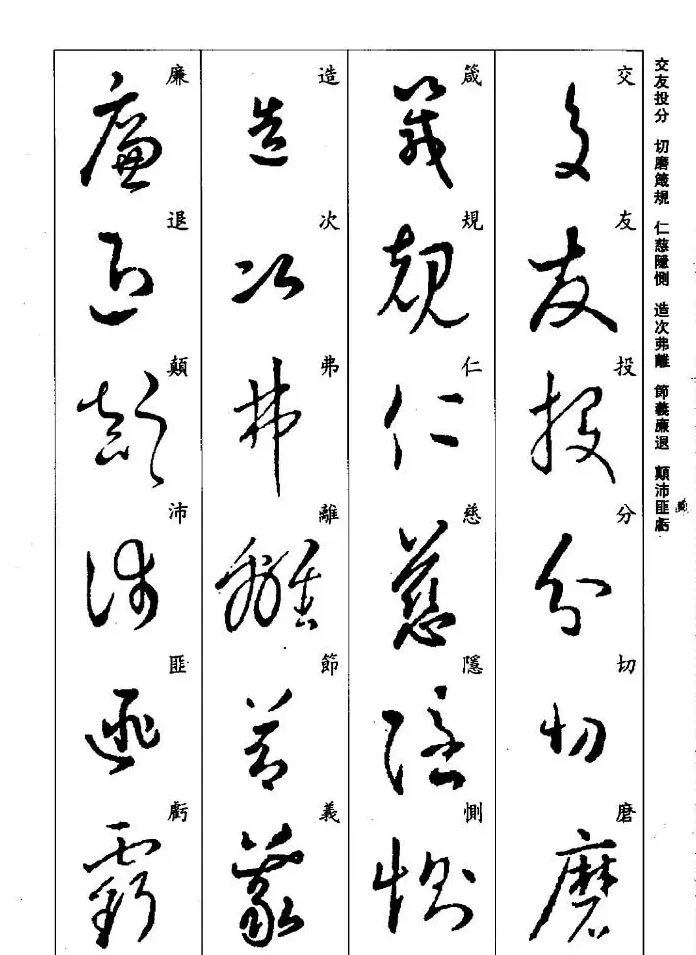 交友投分 切磨箴規 仁慈隱惻 造次弗離 節義廉退 顛沛匪虧
交友投分切磨
箴規仁慈隱惻
造次弗離節義
廉退顛沛匪虧